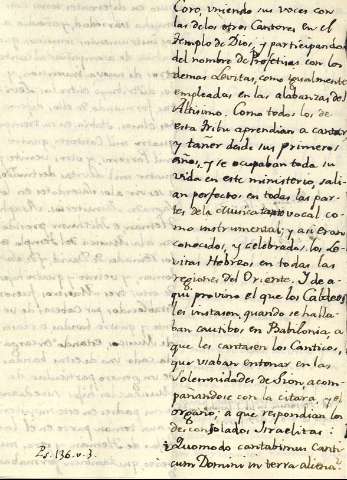 Coro, uniendo sus voces con
las de los otros Cantores en el
Templo de Dios, y participando
del nombre de Profetisas con los
demas Levitas, como igualmente
empleadas en las alabanzas del
Altisimo. Como todos los de
esta Tribu aprendian a cantar
y tañer desde sus primeros
años, y se ocupaban toda su
vida en este ministerio, sali-
an perfectos en todas las par-
tes de la Musica tanto vocal co-
mo instrumental; y asi eran
conocidos, y celebrados los Le-
vitas Hebreos en todas las
regiones del Oriente. Y de a-
qui provino el que los Caldeos
les instasen, quando se halla-
ban cautibos en Babilonia, a
que les cantasen los Canticos,
que usaban entonar en las
solemnidades de Sion, acom-
pañandose con la citara, y el
organo; a que respondian los
desconsolados Israelitas:
Ps. 136. v. 3.
¿Quomodo cantabimus Canti-
cum Domini in terra aliena?